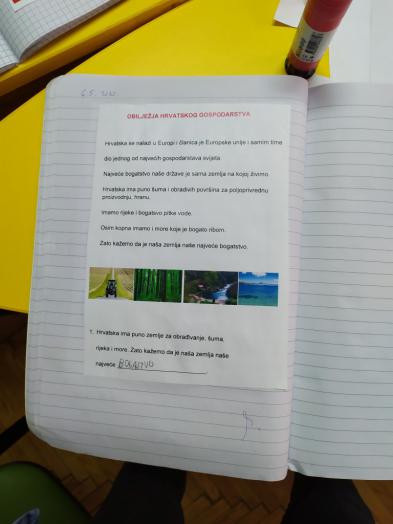 6.5. 2022.
OBILJEŽJA HRVATSKOG GOSPODARSTVA
Hrvatska se nalazi u Europi i članica je Europske unije i samim time
dio jednog od najvećih gospodarstava svijeta.
Najveće bogatstvo naše države je sama zemlja na kojoj živimo.
Hrvatska ima puno šuma i obradivih površina za poljoprivrednu
proizvodnju, hranu.
Imamo rijeke i bogatsvo pitke vode.
Osim kopna imamo i more koje je bogato ribom.
Zato kažemo da je naša zemlja naše najveće bogatstvo.
1. Hrvatska ima puno zemlje za obrađivanje, šuma,
rijeka i more. Zato kažemo da je naša zemlja naše
najveće BOGATSTVO